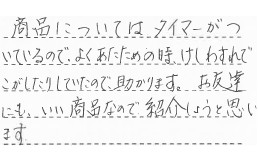 商品については タイマーがつ
いているので、よくあたための時、けしわすれで
こがしたりしていたので、助かります。 お友達
にも、いい商品なので紹介しようと思い
ます